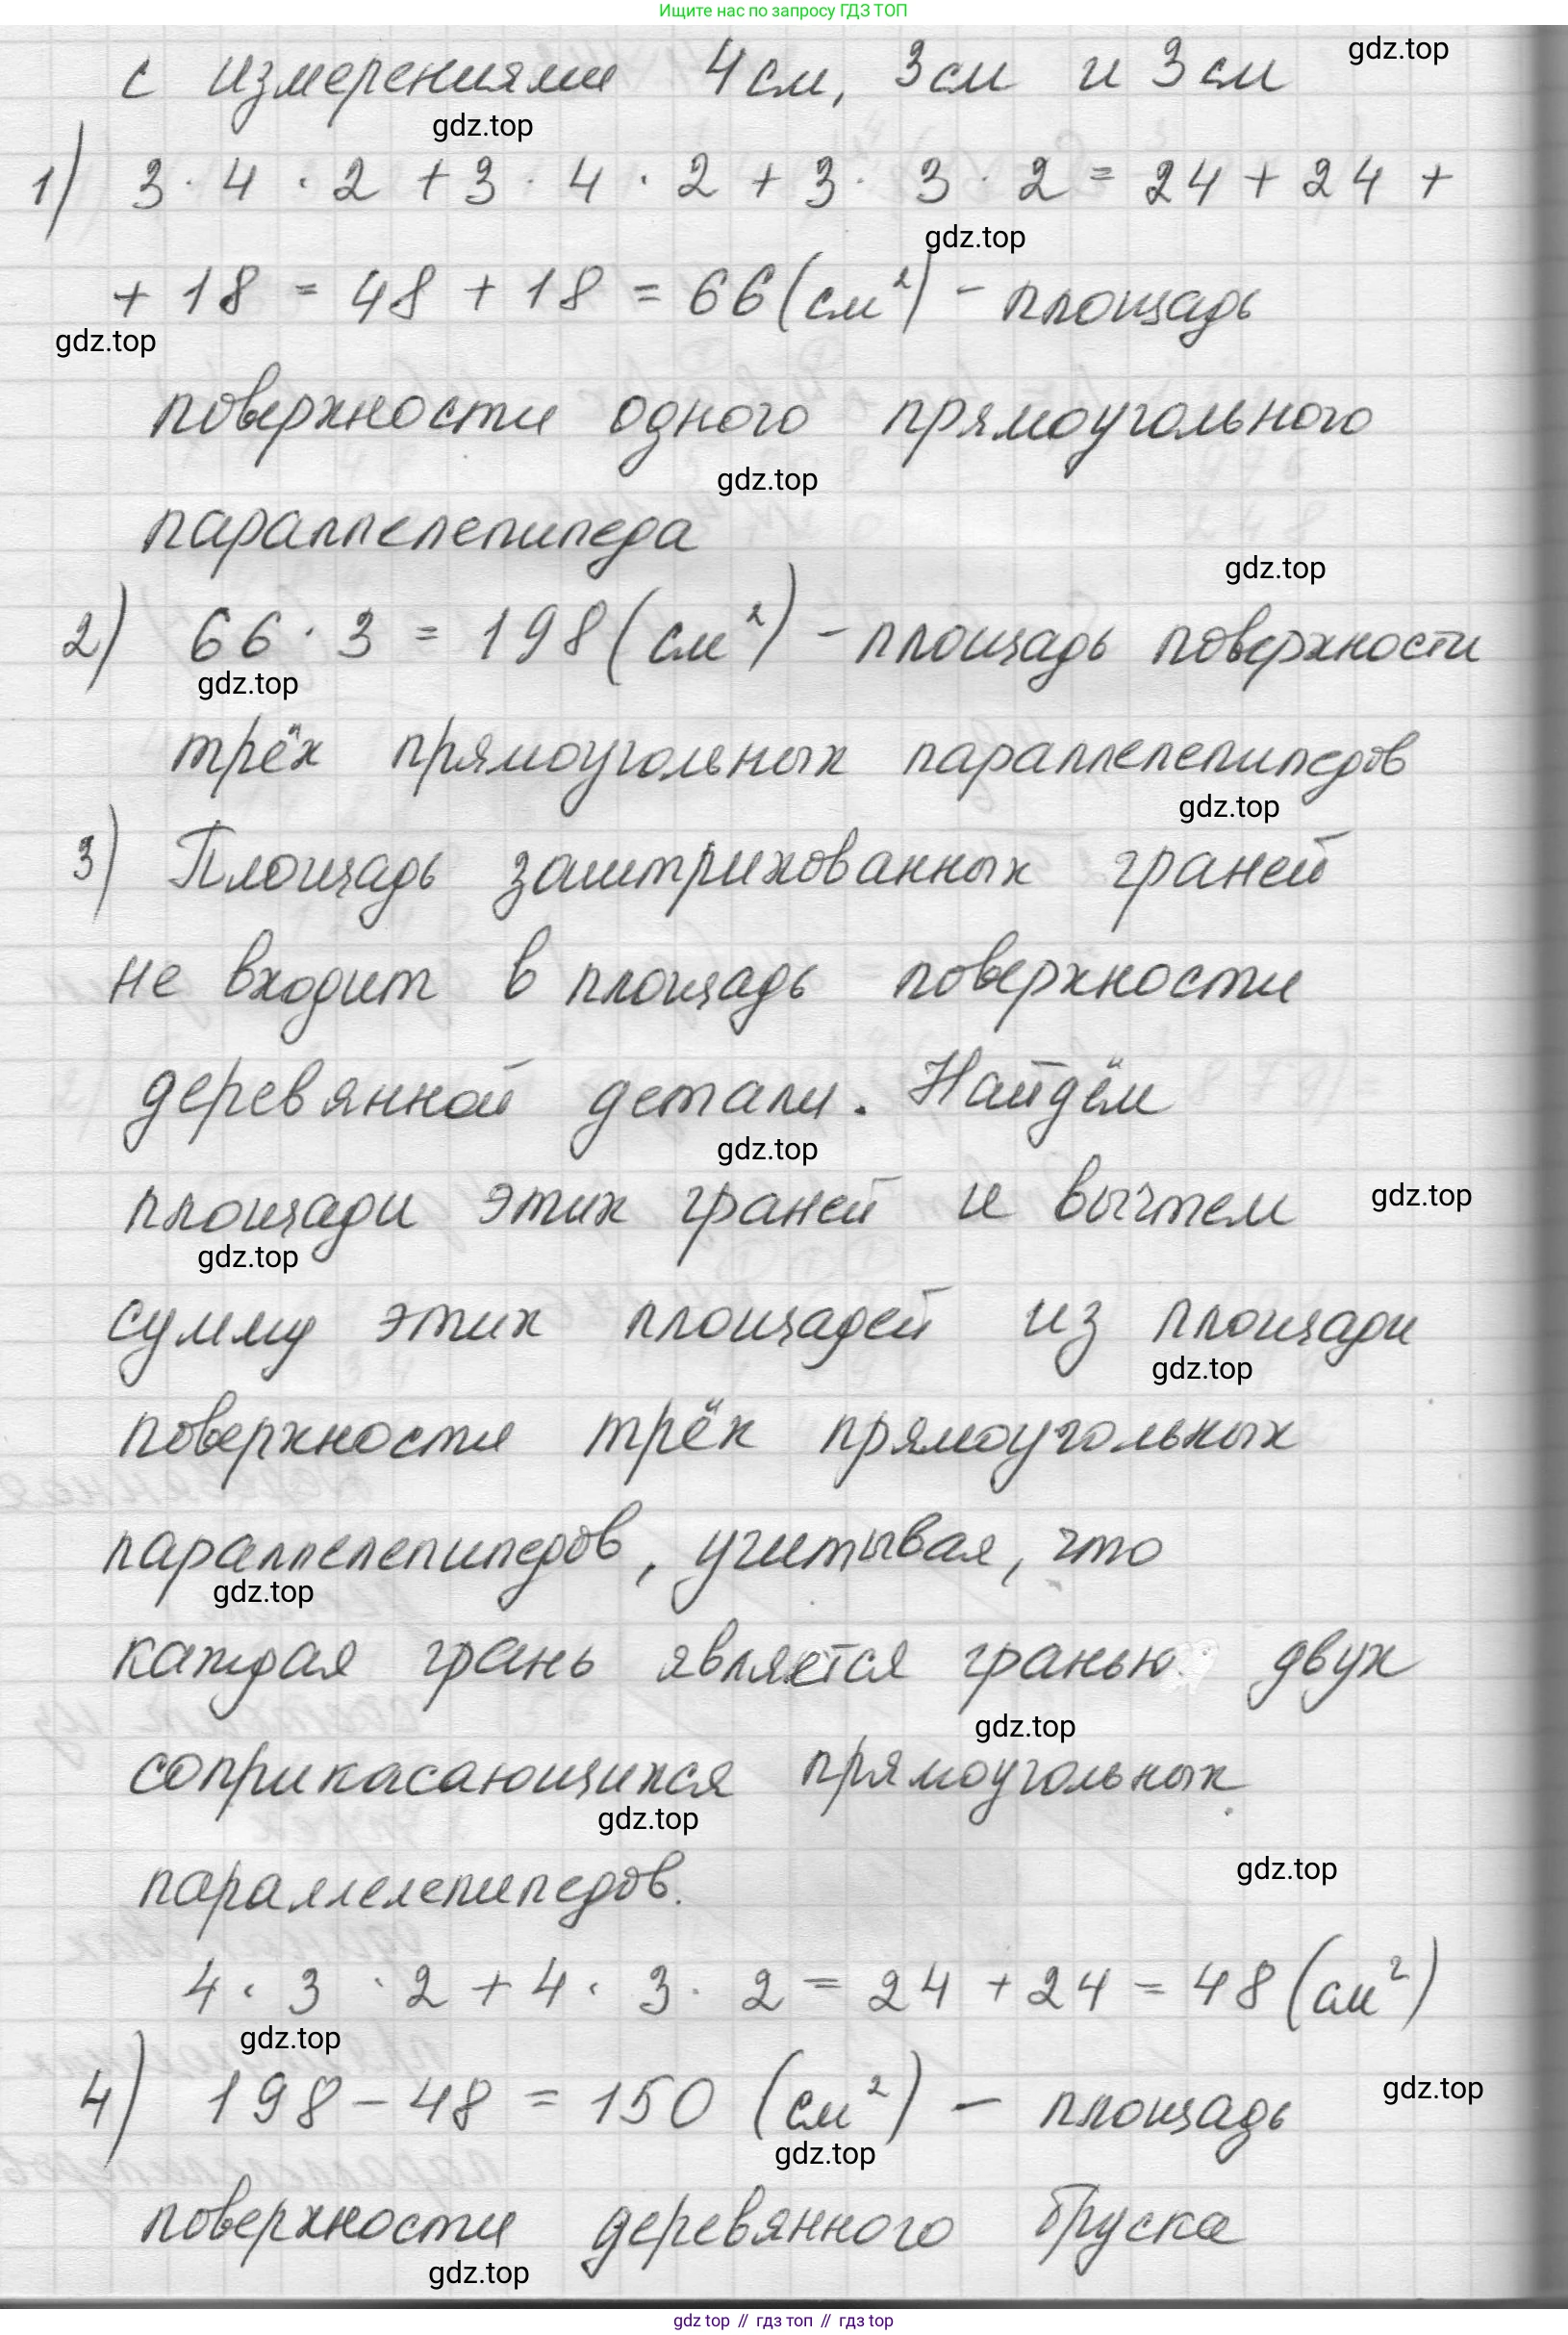 Ищите нас по запросу ГДЗ ТОП
с измерениями 4 см, 3 см и 3 см
gdz.top
gdz.top
1) 3 · 4 · 2 + 3 · 4 · 2 + 3 · 3 · 2 = 24 + 24 +
gdz.top
+ 18 = 48 + 18 = 66 (см²) - площадь
gdz.top
поверхности одного прямоугольного
gdz.top
параллелепипеда
gdz.top
2) 66 · 3 = 198 (см²) - площадь поверхности
gdz.top
трёх прямоугольных параллелепипедов
gdz.top
3) Площадь заштрихованных граней
не входит в площадь поверхности
деревянной детали. Найдём
gdz.top
площади этих граней и вычтем
gdz.top
gdz.top
сумму этих площадей из площади
gdz.top
поверхности трёх прямоугольных
параллелепипедов, учитывая, что
gdz.top
каждая грань является гранью двух
gdz.top
соприкасающихся прямоугольных
gdz.top
параллелепипедов.
gdz.top
4 · 3 · 2 + 4 · 3 · 2 = 24 + 24 = 48 (см²)
gdz.top
4) 198 - 48 = 150 (см²) - площадь
gdz.top
gdz.top
поверхности деревянного бруска
gdz.top
gdz top // гдз топ // гдз top